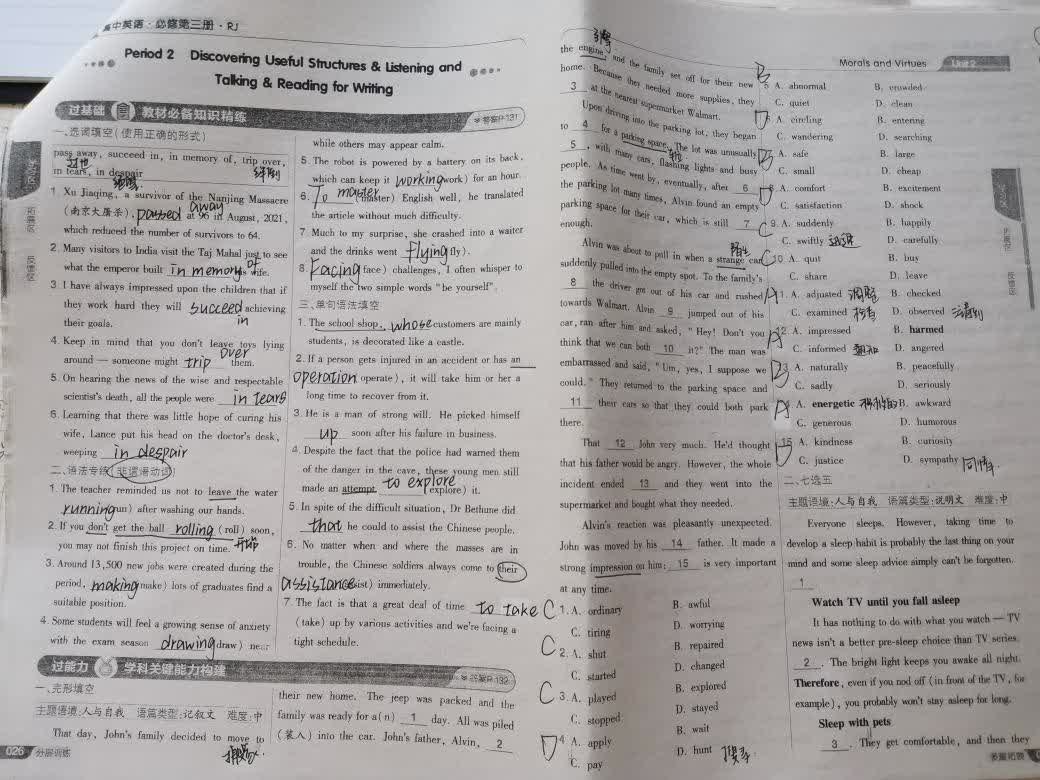 高中英语·必修第三册·RJ
Period 2 Discovering Useful Structures & Listening and
Talking & Reading for Writing
过基础 教材必备知识精练
答案P-131
一、选词填空(使用正确的形式)
pass away, succeed in, in memory of, trip over,
in tears, in despair
1. Xu Jiaqing, a survivor of the Nanjing Massacre
(南京大屠杀), passed away at 96 in August, 2021,
which reduced the number of survivors to 64.
2. Many visitors to India visit the Taj Mahal just to see
what the emperor built in memory of his wife.
3. I have always impressed upon the children that if
they work hard they will succeed in achieving
their goals.
4. Keep in mind that you don't leave toys lying
around — someone might trip over them.
5. On hearing the news of the wise and respectable
scientist's death, all the people were in tears
6. Learning that there was little hope of curing his
wife, Lance put his head on the doctor's desk,
weeping in despair
二、语法专练(非谓语动词)
1. The teacher reminded us not to leave the water
running(run) after washing our hands.
2. If you don't get the ball rolling (roll) soon,
you may not finish this project on time. 开始
3. Around 13,500 new jobs were created during the
period, making(make) lots of graduates find a
suitable position.
4. Some students will feel a growing sense of anxiety
with the exam season drawing(draw) near
while others may appear calm.
5. The robot is powered by a battery on its back,
which can keep it working(work) for an hour.
6. To master (master) English well, he translated
the article without much difficulty.
7. Much to my surprise, she crashed into a waiter
and the drinks went flying(fly).
8. Facing(face) challenges, I often whisper to
myself the two simple words "be yourself".
三、单句语法填空
1. The school shop, whose customers are mainly
students, is decorated like a castle.
2. If a person gets injured in an accident or has an
operation (operate), it will take him or her a
long time to recover from it.
3. He is a man of strong will. He picked himself
up soon after his failure in business.
4. Despite the fact that the police had warned them
of the danger in the cave, these young men still
made an attempt to explore (explore) it.
5. In spite of the difficult situation, Dr Bethune did
that he could to assist the Chinese people.
6. No matter when and where the masses are in
trouble, the Chinese soldiers always come to their
assistance(assist) immediately.
7. The fact is that a great deal of time to take
(take) up by various activities and we're facing a
tight schedule.
过能力 学科关键能力构建
答案P-132
一、完形填空
主题语境:人与自我 语篇类型:记叙文 难度:中
That day, John's family decided to move to
their new home. The jeep was packed and the
family was ready for a(n) 1 day. All was piled
(装入) into the car. John's father, Alvin, 2
026 分层训练
Morals and Virtues Unit 2
the engine, and the family set off for their new
home. Because they needed more supplies, they
3 at the nearest supermarket Walmart.
Upon driving into the parking lot, they began
to 4 for a parking space. The lot was unusually
5, with many cars, flashing lights and busy
people. As time went by, eventually, after 6
the parking lot many times, Alvin found an empty
parking space for their car, which is still 7
enough.
Alvin was about to pull in when a strange car
suddenly pulled into the empty spot. To the family's
8 the driver got out of his car and rushed
towards Walmart. Alvin 9 jumped out of his
car, ran after him and asked, "Hey! Don't you
think that we can both 10 it?" The man was
embarrassed and said, "Um, yes, I suppose we
could." They returned to the parking space and
11 their cars so that they could both park
there.
That 12 John very much. He'd thought
that his father would be angry. However, the whole
incident ended 13 and they went into the
supermarket and bought what they needed.
Alvin's reaction was pleasantly unexpected.
John was moved by his 14 father. It made a
strong impression on him; 15 is very important
at any time.
C 1. A. ordinary B. awful
C. tiring D. worrying
C 2. A. shut B. repaired
C. started D. changed
C 3. A. played B. explored
C. stopped D. stayed
D 4. A. apply B. wait
C. pay D. hunt
B 5. A. abnormal B. crowded
C. quiet D. clean
6. A. circling B. entering
C. wandering D. searching
B 7. A. safe B. large
C. small D. cheap
8. A. comfort B. excitement
C. satisfaction D. shock
C 9. A. suddenly B. happily
C. swiftly 迅速 D. carefully
C 10. A. quit B. buy
C. share D. leave
A 11. A. adjusted 调整 B. checked
C. examined 检查 D. observed 注意到
A 12. A. impressed B. harmed
C. informed 通知 D. angered
B 13. A. naturally B. peacefully
C. sadly D. seriously
A 14. A. energetic B. awkward
C. generous D. humorous
D 15. A. kindness B. curiosity
C. justice D. sympathy 同情
二、七选五
主题语境:人与自我 语篇类型:说明文 难度:中
Everyone sleeps. However, taking time to
develop a sleep habit is probably the last thing on your
mind and some sleep advice simply can't be forgotten.
1
Watch TV until you fall asleep
It has nothing to do with what you watch — TV
news isn't a better pre-sleep choice than TV series.
2. The bright light keeps you awake all night.
Therefore, even if you nod off (in front of the TV, for
example), you probably won't stay asleep for long.
Sleep with pets
3. They get comfortable, and then they